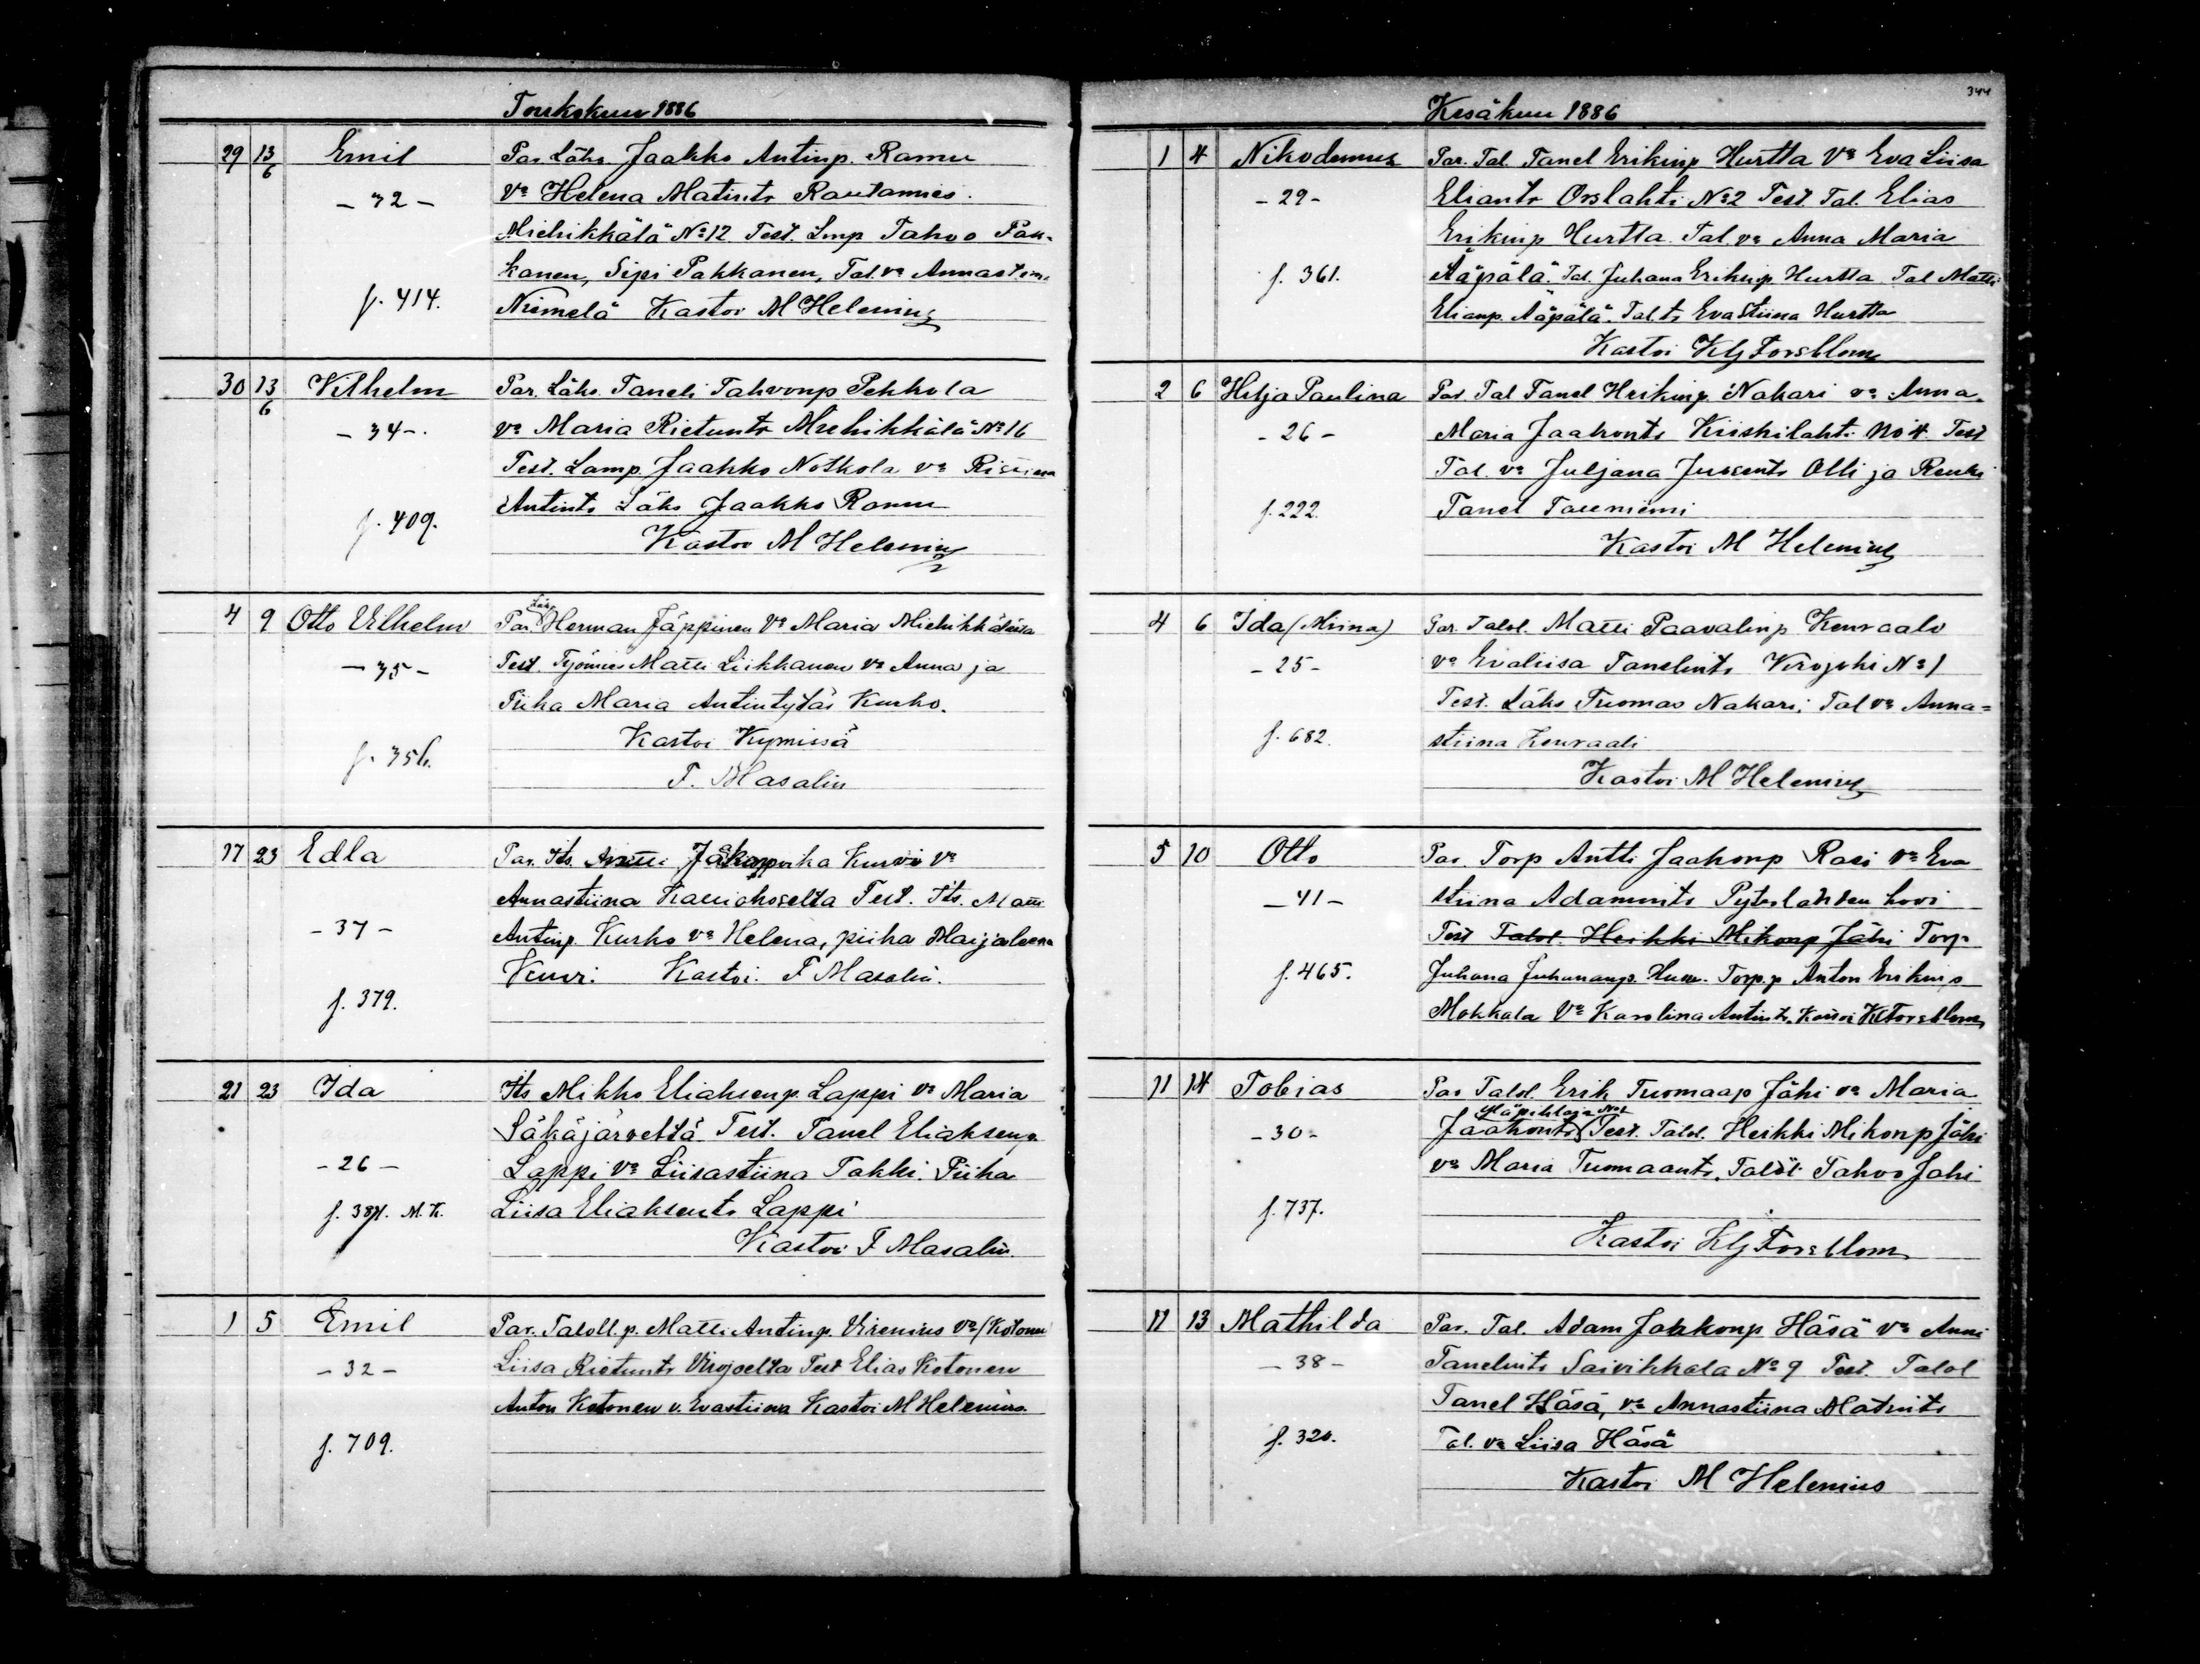 Toukokuu 1886
29 13/6 Emil Par. Läks. Jaakko Antinp. Ramu
- 32 - va Helena Matints Rautamies.
Miehikkälä No 12. Test. Lmp Tahvo Pak-
kanen, Sipi Pakkanen, Tal. va Annastiina
f. 414. Niemelä Kastoi M Helenius
30 13/6 Vilhelm Par. Läks. Taneli Tahvonp Pekkola
- 34 - va Maria Rietunts Miehikkälä No 16
Test. Lamp. Jaakko Notkola va Ristiina
Antints Läks Jaakko Ramu
f. 409. Kastoi M Helenius
4 9 Otto Vilhelm Par. Läks Herman Jäppinen va Maria Miehikkälästä
- 35 - Test. Työmies Matti Liikkanen va Anna ja
Piika Maria Antintytär Kurko.
Kastoi Kymissä
f. 356. F. Masalin
17 23 Edla Par. Its. Jaakonpoika Kurvi va
Annastiina Test. Its. Matti
- 37 - Antinp. Kurko va Helena, piika Maijaleena
Kurvi. Kastoi. F Masalin.
f. 379.
21 23 Ida Its Mikko Eliaksenp. Lappi va Maria
Säkäjärveltä Test. Tanel Eliaksenp.
- 26 - Lappi va Liisastiina Takki. Piika
f. 387. M. K. Liisa Eliaksents Lappi
Kastoi F Masalin
1 5 Emil Par. Taloll. p. Matti Antinp. Virenius va (Kotonen
- 32 - Liisa Rietunts Virojoelta Test Elias Kotonen
Anton Kotonen v. Evastiina Kastoi M Helenius.
f. 709.
344
Kesäkuu 1886
1 4 Nikodemus Par. Tal. Tanel Erikinp. Hurtta va Eva Liisa
- 29 - Eliants Orslahti No 2 Test. Tal. Elias
Erikinp Hurtta. Tal. va Anna Maria
f. 361. Ääpälä. Tal. Juhana Erikinp. Hurtta. Tal Matti
Elianp. Ääpälä. Tal. ts Eva Stiina Hurtta
Kastoi KG Forsblom
2 6 Hilja Paulina Par. Tal Tanel Heikinp. Nakari va Anna
- 26 - Maria Jaakonts Kiiskilahti No 4. Test
Tal. va Juljana Jussents Olli ja Renki
f. 222. Tanel Tauniemi
Kastoi M Helenius
4 6 Ida (Miina) Par. Talol. Matti Paavalinp Kenraali
- 25 - va Evaliisa Tanelints Virojoki No 1
Test. Läks Tuomas Nakari; Tal va Anna=
f. 682. stiina Kenraali
Kastoi M Helenius
5 10 Otto Par. Torp Antti Jaakonp Rasi va Eva
- 41 - stiina Adamints Pyterlahden hovi
Test Talol. Heikki Mikonp Jähi Torp
f. 465. Juhana Juhananp. Torp. p Anton Erikinp
Mokkala va Karolina Antints. Kastoi KG Forsblom
11 14 Tobias Par Talol. Erik Tuomaap Jähi va Maria
- 30 - Jaakonts Test. Talol. Heikki Mikonp Jähi
va Maria Tuomaants. Talol. Tahvo Jähi
f. 737.
Kastoi KG Forsblom
12 13 Mathilda Par. Tal. Adam Jaakonp Häsä va Anni
- 38 - Tanelints Saivikkala No 9 Test. Talol
Tanel Häsä, va Annastiina Matints
f. 320. Tal. va Liisa Häsä
Kastoi M Helenius